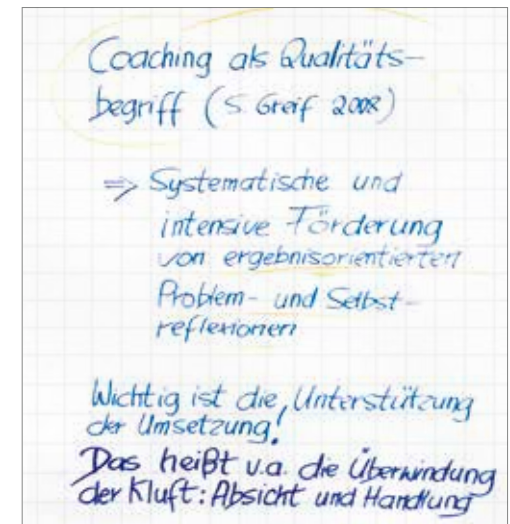 Coaching als Qualitäts-
begriff (S. Greif 2008)
=> Systematische und
intensive Förderung
von ergebnisorientierten
Problem- und Selbst-
reflexionen
Wichtig ist die Unterstützung
der Umsetzung!
Das heißt v.a. die Überwindung
der Kluft: Absicht und Handlung